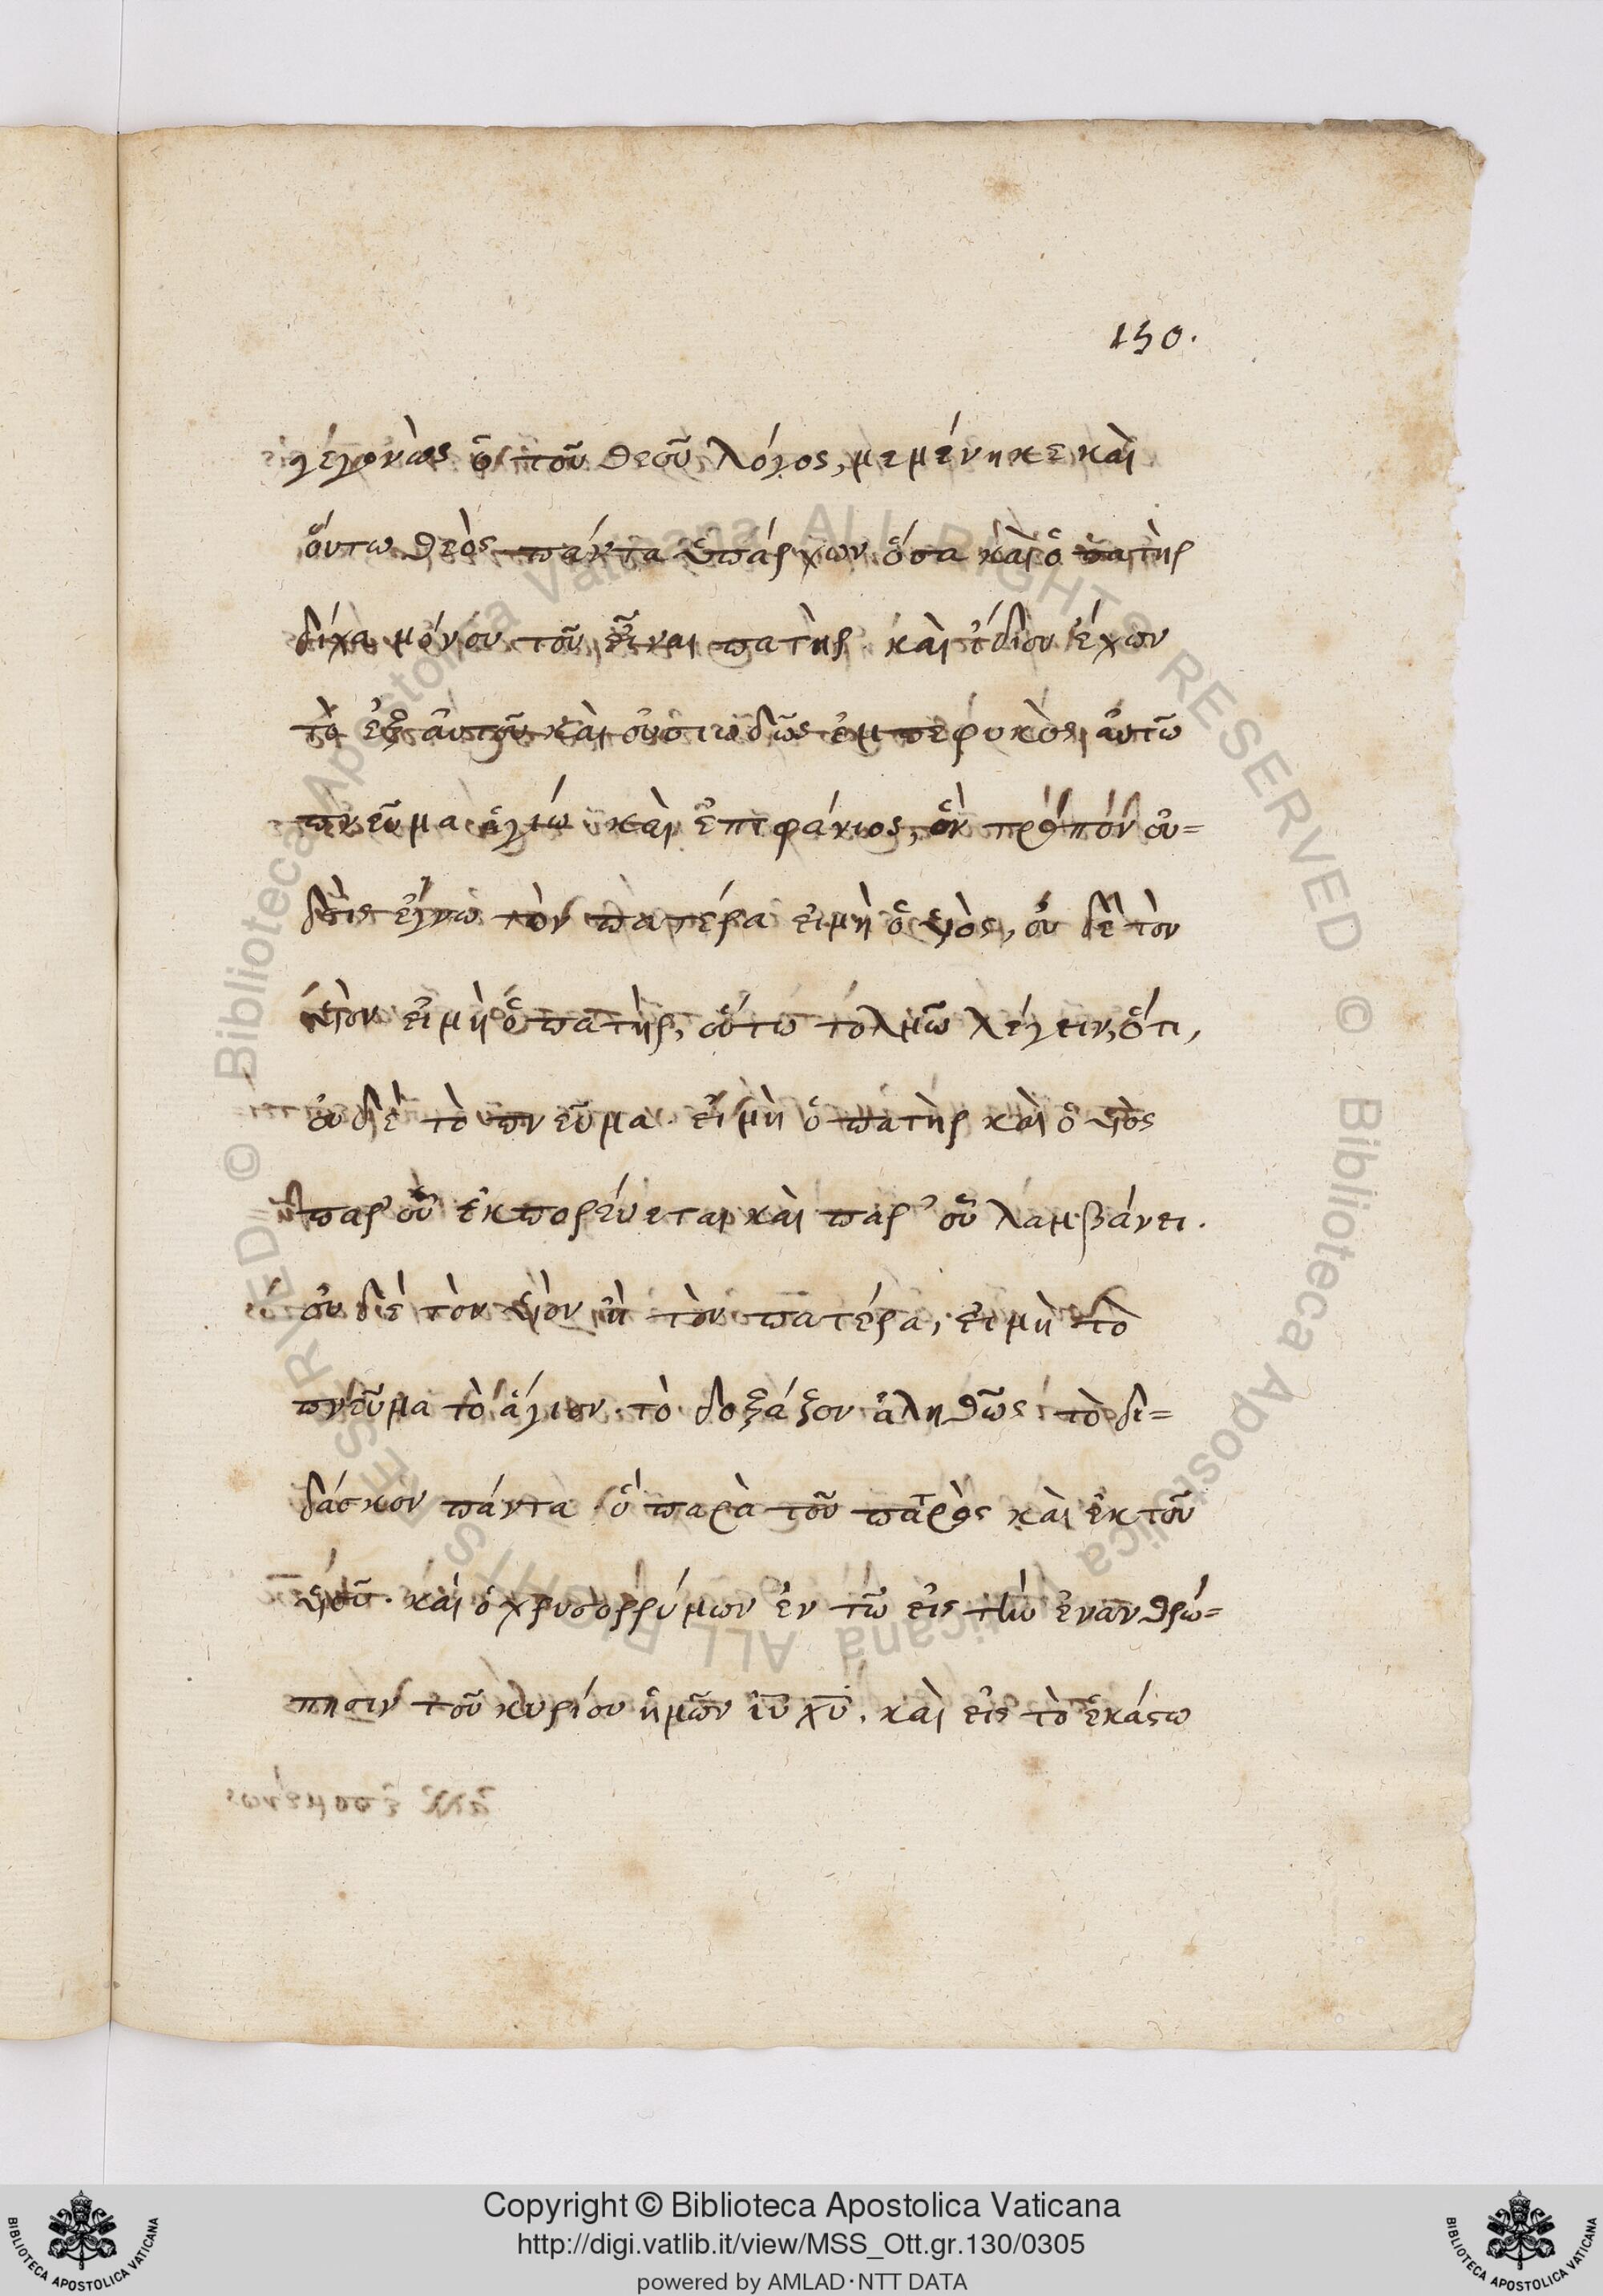 150.
γεγονὼς ὁ τοῦ θεοῦ λόγος, μεμένηκε καὶ
οὕτω θεὸς πάντα ὑπάρχων ὅσα καὶ ὁ πατὴρ
δίχα μόνου τοῦ εἶναι πατὴρ. καὶ ἴδιον ἔχων
τὸ ἐξ αὐτοῦ καὶ οὐσιωδῶς ἐμπεφυκὸς αὐτῶ
πνεῦμα ἅγιον καὶ ἐπιφάνιος, ὃν τρόπον οὐ=
δεὶς ἔγνω τὸν πατέρα εἰμὴ ὁ υἱὸς, οὐ δὲ τὸν
υἱὸν εἰ μὴ ὁ πατὴρ, οὕτω τολμῶ λέγειν, ὅτι,
οὐ δὲ τὸ πνεῦμα. εἰ μὴ ὁ πατὴρ καὶ ὁ υἱὸς
παρ' οὗ ἐκπορεύεται καὶ παρ' οὗ λαμβάνει.
οὐ δὲ τὸν υἱὸν ἢ τὸν πατέρα, εἰ μὴ τὸ
πνεῦμα τὸ ἅγιον. τὸ δοξάζον ἀληθῶς τὸ δι=
δάσκον πάντα ὃ παρὰ τοῦ πατρὸς καὶ ἐκ τοῦ
υἱοῦ. καὶ ὁ χρυσορρύμων ἐν τῶ εἰς τὴν ἐνανθρώ=
πησιν τοῦ κυρίου ἡμῶν ἰυ χυ. καὶ εἰς τὸ ἑκάστω
© Biblioteca Apostolica Vaticana ALL RIGHTS RESERVED © Biblioteca Apostolica Vaticana ALL RIGHTS RESERVED
Copyright © Biblioteca Apostolica Vaticana
http://digi.vatlib.it/view/MSS_Ott.gr.130/0305
powered by AMLAD·NTT DATA
BIBLIOTECA APOSTOLICA VATICANA
BIBLIOTECA APOSTOLICA VATICANA